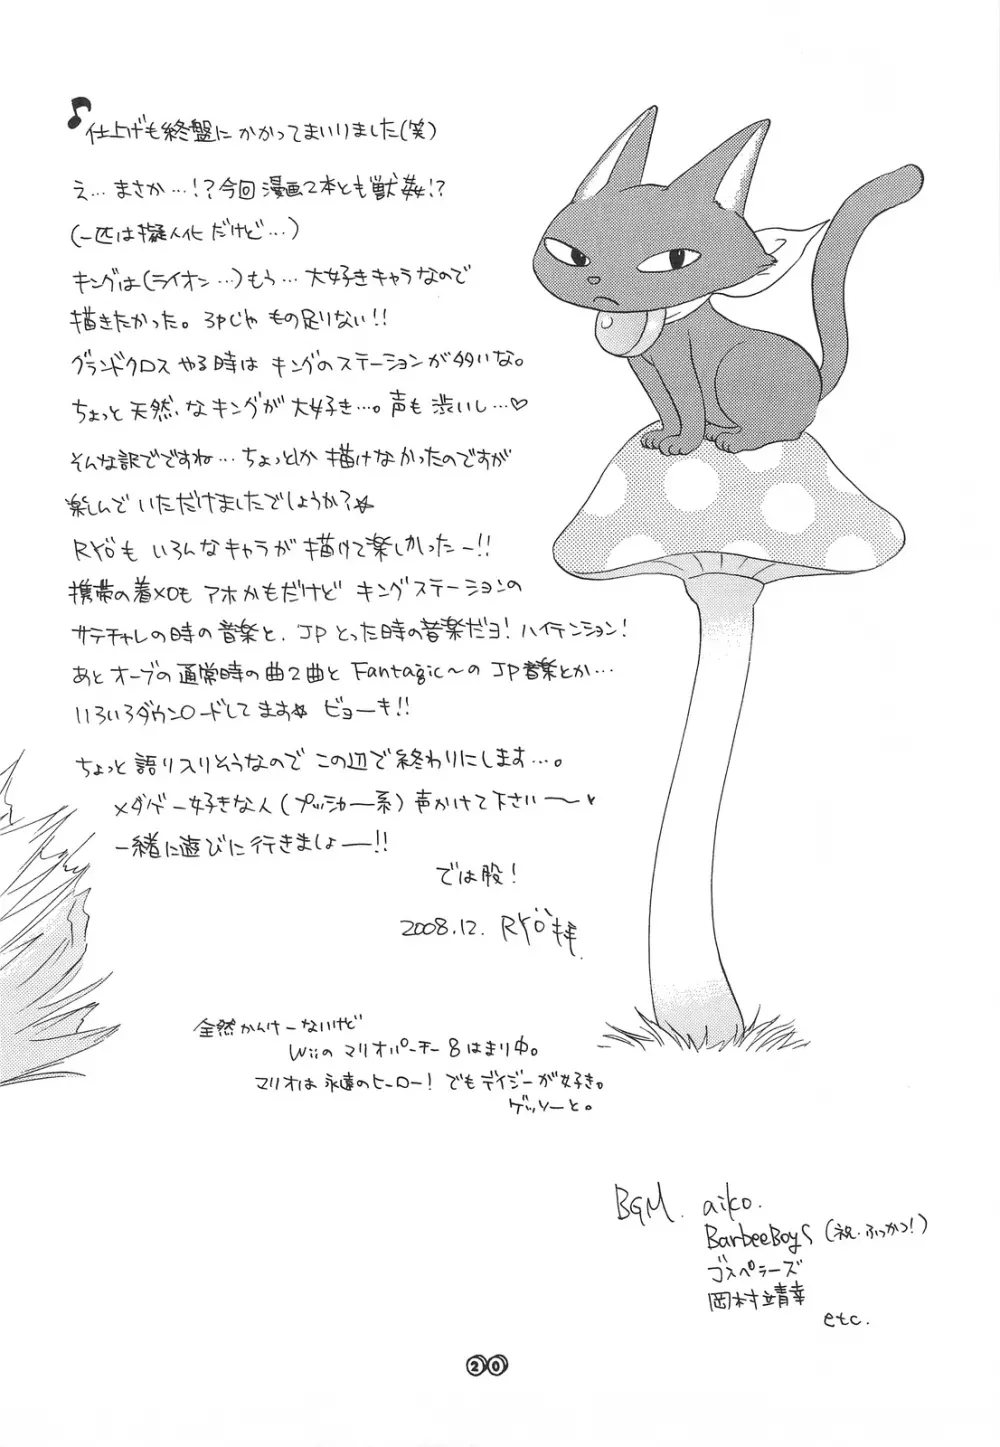 仕上げも終盤にかかってまいりました(笑)
え…まさか…!?今回漫画2本とも獣姦!?
(一匹は擬人化だけど…)
キングは(ライオン…)もう…大好きキャラなので
描きたかった。3Pじゃもの足りない!!
グランドクロスやる時はキングのステーションが多いな。
ちょっと天然なキングが大好き…。声も渋いし…♡
そんな訳でですね…ちょっとか描けなかったのですが
楽しんでいただけましたでしょうか?☆
RYÖもいろんなキャラが描けて楽しかったー!!
携帯の着メロもアホかもだけどキングステーションの
サテチャレの時の音楽と、JPとった時の音楽だヨ!ハイテンション!
あとオーブの通常時の曲2曲とFantagic〜のJP音楽とか…
いろいろダウンロードしてます☆ビョーキ!!
ちょっと語り入りそうなのでこの辺で終わりにします…。
メダゲー好きな人(プッシャー系)声かけて下さい〜♥
一緒に遊びに行きましょー!!
では股!
2008.12. RYÖ拝
全然かんけーないけど
Wiiのマリオパーチー8はまり中。
マリオは永遠のヒーロー!でもデイジーが好き。
ゲッソーと。
BGM. aiko.
BarbeeBoys(祝.ふっかつ!)
ゴスペラーズ
岡村靖幸
etc.
20